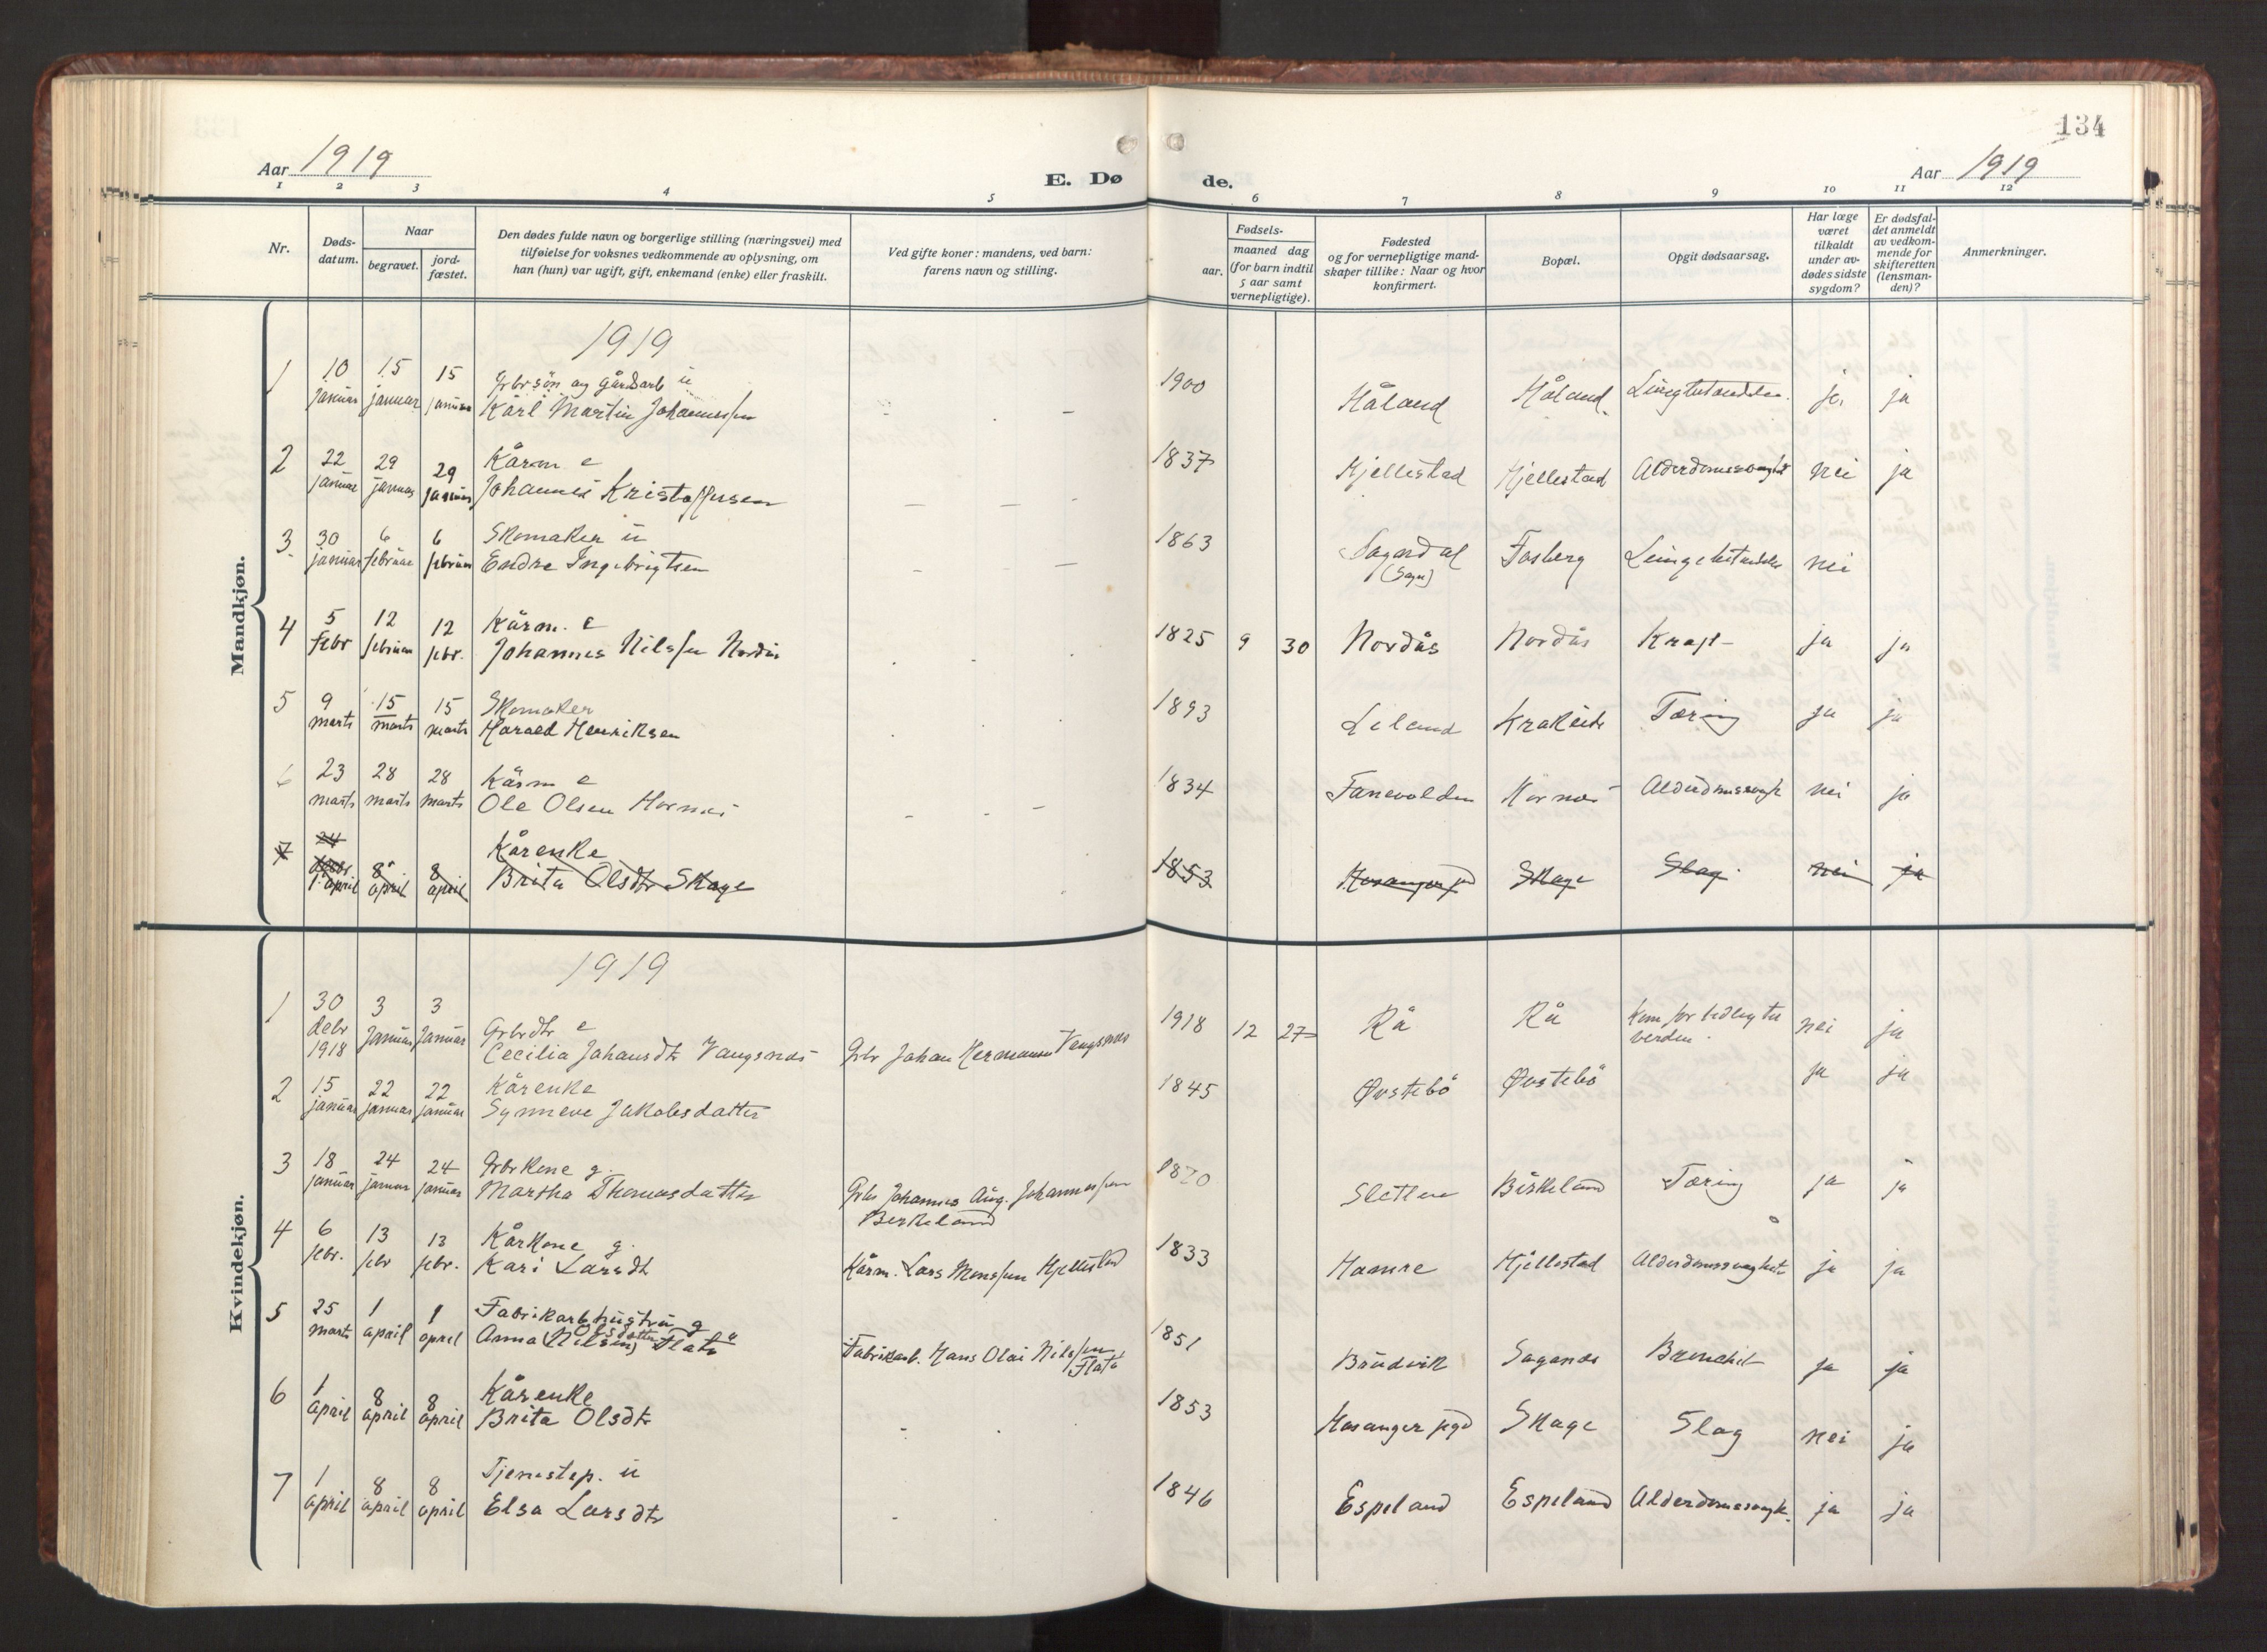 134
Aar 1919
E. Dø de.
Aar 1919
1 2 3 4 5 6 7 8 9 10 11 12
Nr.
Døds-
datum.
Naar
begravet.
jord-
fæstet.
Den dødes fulde navn og borgerlige stilling (næringsvei) med
tilføielse for voksnes vedkommende av oplysning, om
han (hun) var ugift, gift, enkemand (enke) eller fraskilt.
Ved gifte koner: mandens, ved barn:
farens navn og stilling.
Fødsels-
aar.
maaned dag
(for barn indtil
5 aar samt
vernepligtige).
Fødested
og for vernepligtige mand-
skaper tillike: Naar og hvor
konfirmert.
Bopæl.
Opgit dødsaarsag.
Har læge
været
tilkaldt
under av-
dødes sidste
sygdom?
Er dødsfal-
det anmeldt
av vedkom-
mende for
skifteretten
(lensman-
den)?
Anmerkninger.
Mandkjøn.
1919
1 10 15 15 Grbrsön og gårdsarb ü 1900
januar januar januar Karl Martin Johannessen Håland Håland Lungebetændelse ja ja
2 22 29 29 Kårm e 1837
januar januar januar Johannes Kristoffersen Kjellestad Kjellestad Alderdomssvaghet nei ja
3 30 6 6 Skomaker ü 1863
januar februar februar Endre Ingebrigtsen Sogndal Fosberg Lungebetændelse nei
(Sogn)
4 5 12 12 Kårm. e 1825 9 30
febr februar febr. Johannes Nilssen Nordås Nordås Nordås Kræft ja ja
5 9 15 15 Skomaker 1893
marts marts marts Harald Henriksen Liland Krakeide Tæring ja ja
6 23 28 28 Kårm e 1834
marts marts marts Ole Olsen Hornes Fanevolden Hornes Alderdomssvagh nei ja
7 24 Kårenke 1853
1. april 8 april 8 april Brita Olsdtr Skage Hosanger pgd Skage Slag nei ja
Kvindekjøn.
1919
1 30 3 3 Grbrdtr e 1918 12 27
debr januar januar Cecilia Johansdtr Vangsnes Grbr Johan Hermansen Vangsnes Rå Rå Kom for tidlig til nei ja
1918 verden.
2 15 22 22 Kårenke 1845
januar januar januar Synneve Jakobsdatter Øvstebö Øvstebö ja ja
3 18 24 24 Grbrkone g.
januar januar januar Martha Thomasdatter Grbr Johannes Aug. Johannessen Slettene Birkeland Tæring ja ja
Birkeland
4 6 13 13 Kårkone g. 1833
febr. febr febr. Kari Larsdtr Kårm. Lars Monssen Hjellestad Hamre Hjellestad Alderdomssvaghet ja ja
5 25 1 1 Fabrikarbhustru g 1851
marts april april Anna (Nilsen) Olsdatter Flatö Fabrikarb. Hans Olai Nilssen Bruvik Bronchit ja ja
Flatö
6 1 8 8 Kårenke 1853
april april april Brita Olsdtr Hosanger pgd Skage Slag nei ja
7 1 8 8 Tjenestep. ü 1846
april april april Elsa Larsdtr Espeland Espeland Alderdomssvagh. ja ja